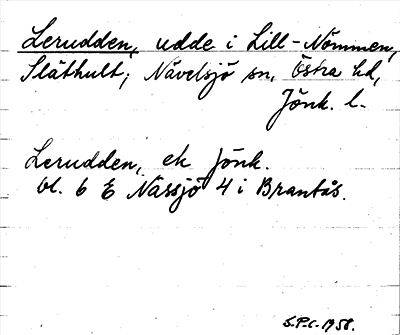 Lerudden, udde i Lill-Nömmen,
Släthult, Nävelsjö sn, Östra hd,
Jönk. l.
Lerudden, ek Jönk.
bl. 6 E Nässjö 4 i Brantås.
S.P.C. 1958.